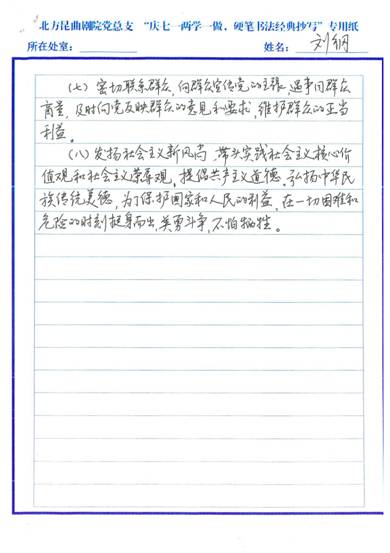 北方昆曲剧院党总支 “庆七一两学一做，硬笔书法经典抄写”专用纸
所在处室： 姓名：刘钢
（七）密切联系群众，向群众宣传党的主张，遇事同群众
商量，及时向党反映群众的意见和要求，维护群众的正当
利益。
（八）发扬社会主义新风尚，带头实践社会主义核心价
值观和社会主义荣辱观，提倡共产主义道德，弘扬中华民
族传统美德，为了保护国家和人民的利益，在一切困难和
危险的时刻挺身而出，英勇斗争，不怕牺牲。